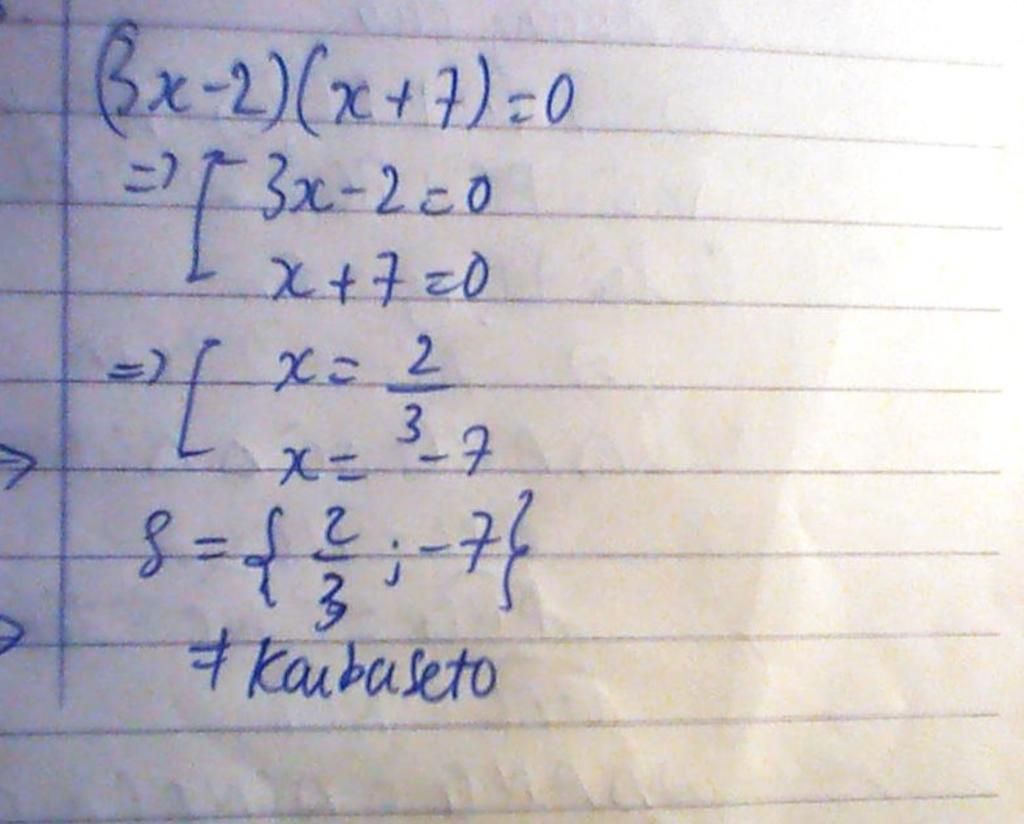 (3x-2)(x+7)=0
=> [ 3x-2=0
x+7=0
=> [ x= 2/3
x= -7
S={2/3;-7}
# Kaibaseto